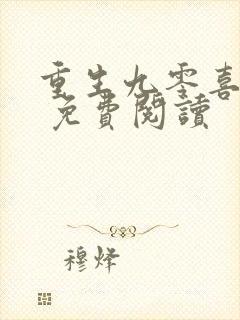 重生九零喜
免費閱讀
穆烽